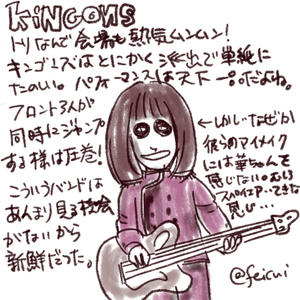 KiNGONS
トリなんで会場も熱気ムンムン!
キンゴンズはとにかく派出で単純に
たのしい。パフォーマンスは天下一。だよね。
フロント3人が
同時にジャンプ
する様は圧巻!
こういうバンドは
あんまり見る機会
がないから
新鮮だった。
←しかしなぜか
彼らのアイメイク
には華ちゃんを
感じない。むしろ
@feicui